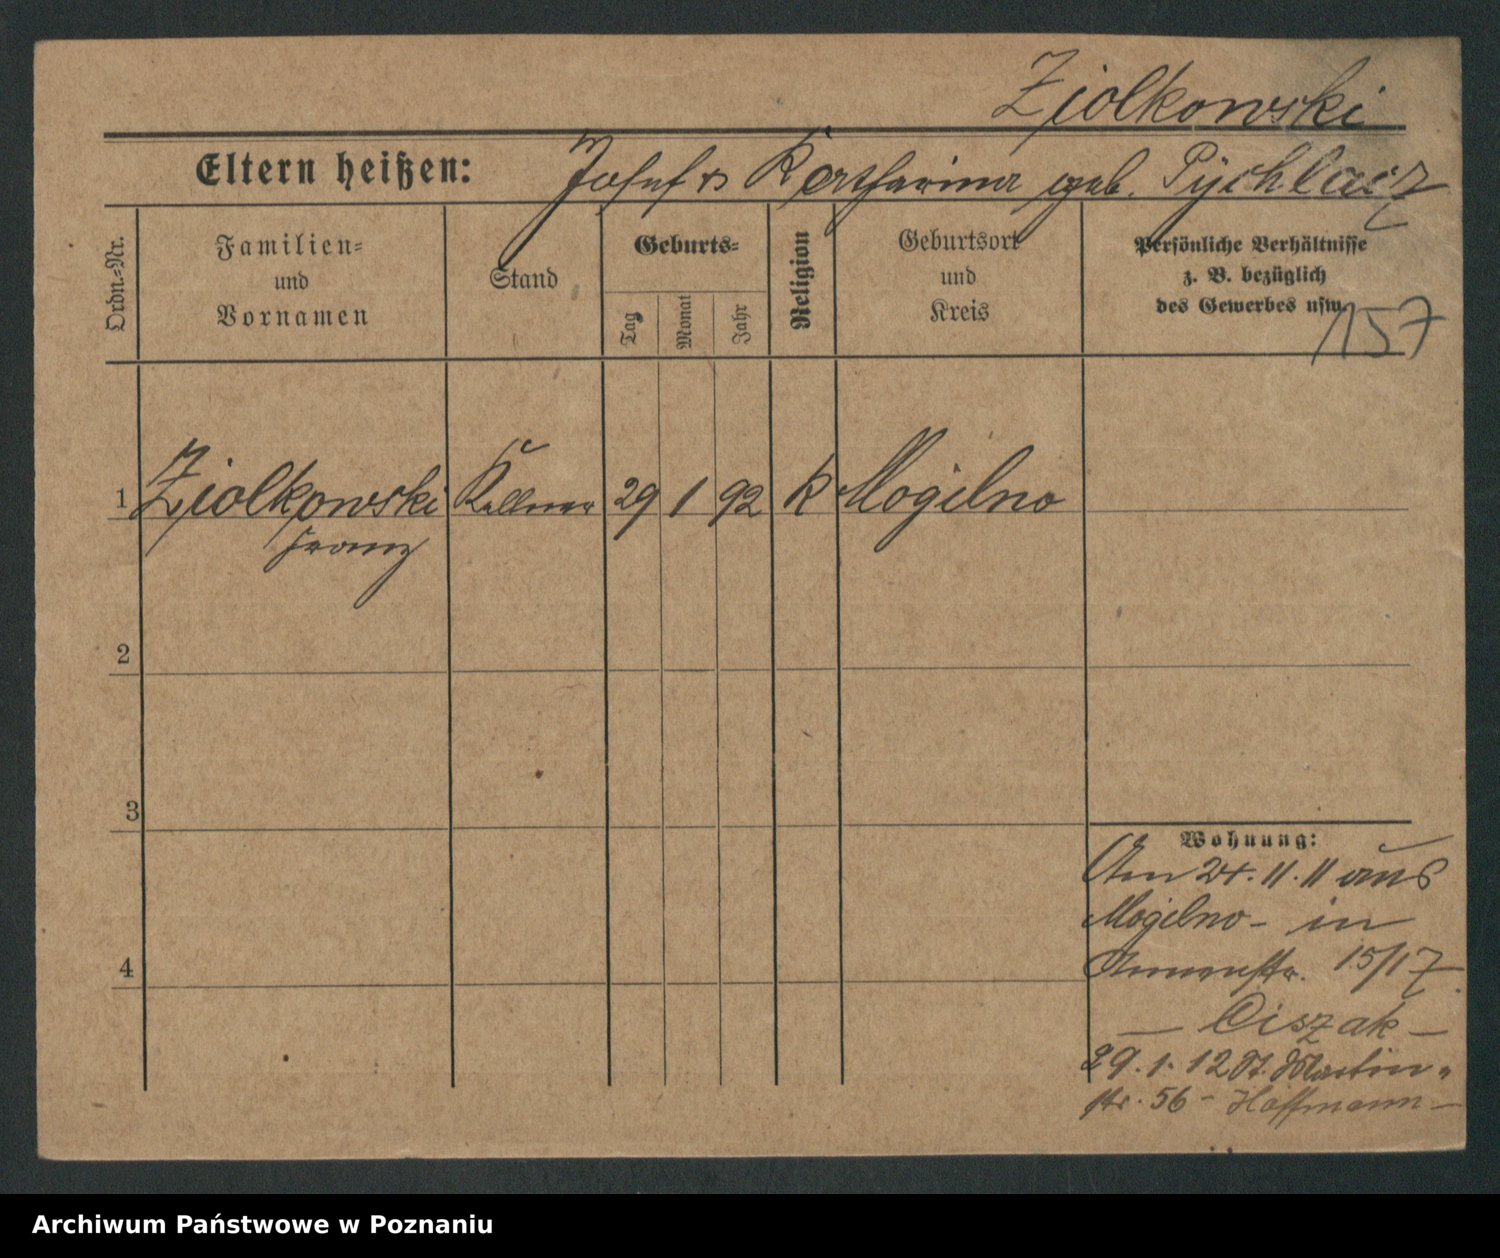 Ziolkowski
Eltern heißen: Josef u Katharina geb. Pychlacz
Ordn.-Nr.
Familien-
und
Vornamen
Stand
Geburts-
Tag
Monat
Jahr
Religion
Geburtsort
und
Kreis
Persönliche Verhältnisse
z. B. bezüglich
des Gewerbes usw.
157
1 Ziolkowski Kellner 29 1 92 k Mogilno
Franz
2
3
4
Wohnung:
Am 24. 11. 11 aus
Mogilno - in
Annenstr. 15/17.
— Ciszak —
29. 1. 12 St. Martin-
str. 56 - Hoffmann —
Archiwum Państwowe w Poznaniu